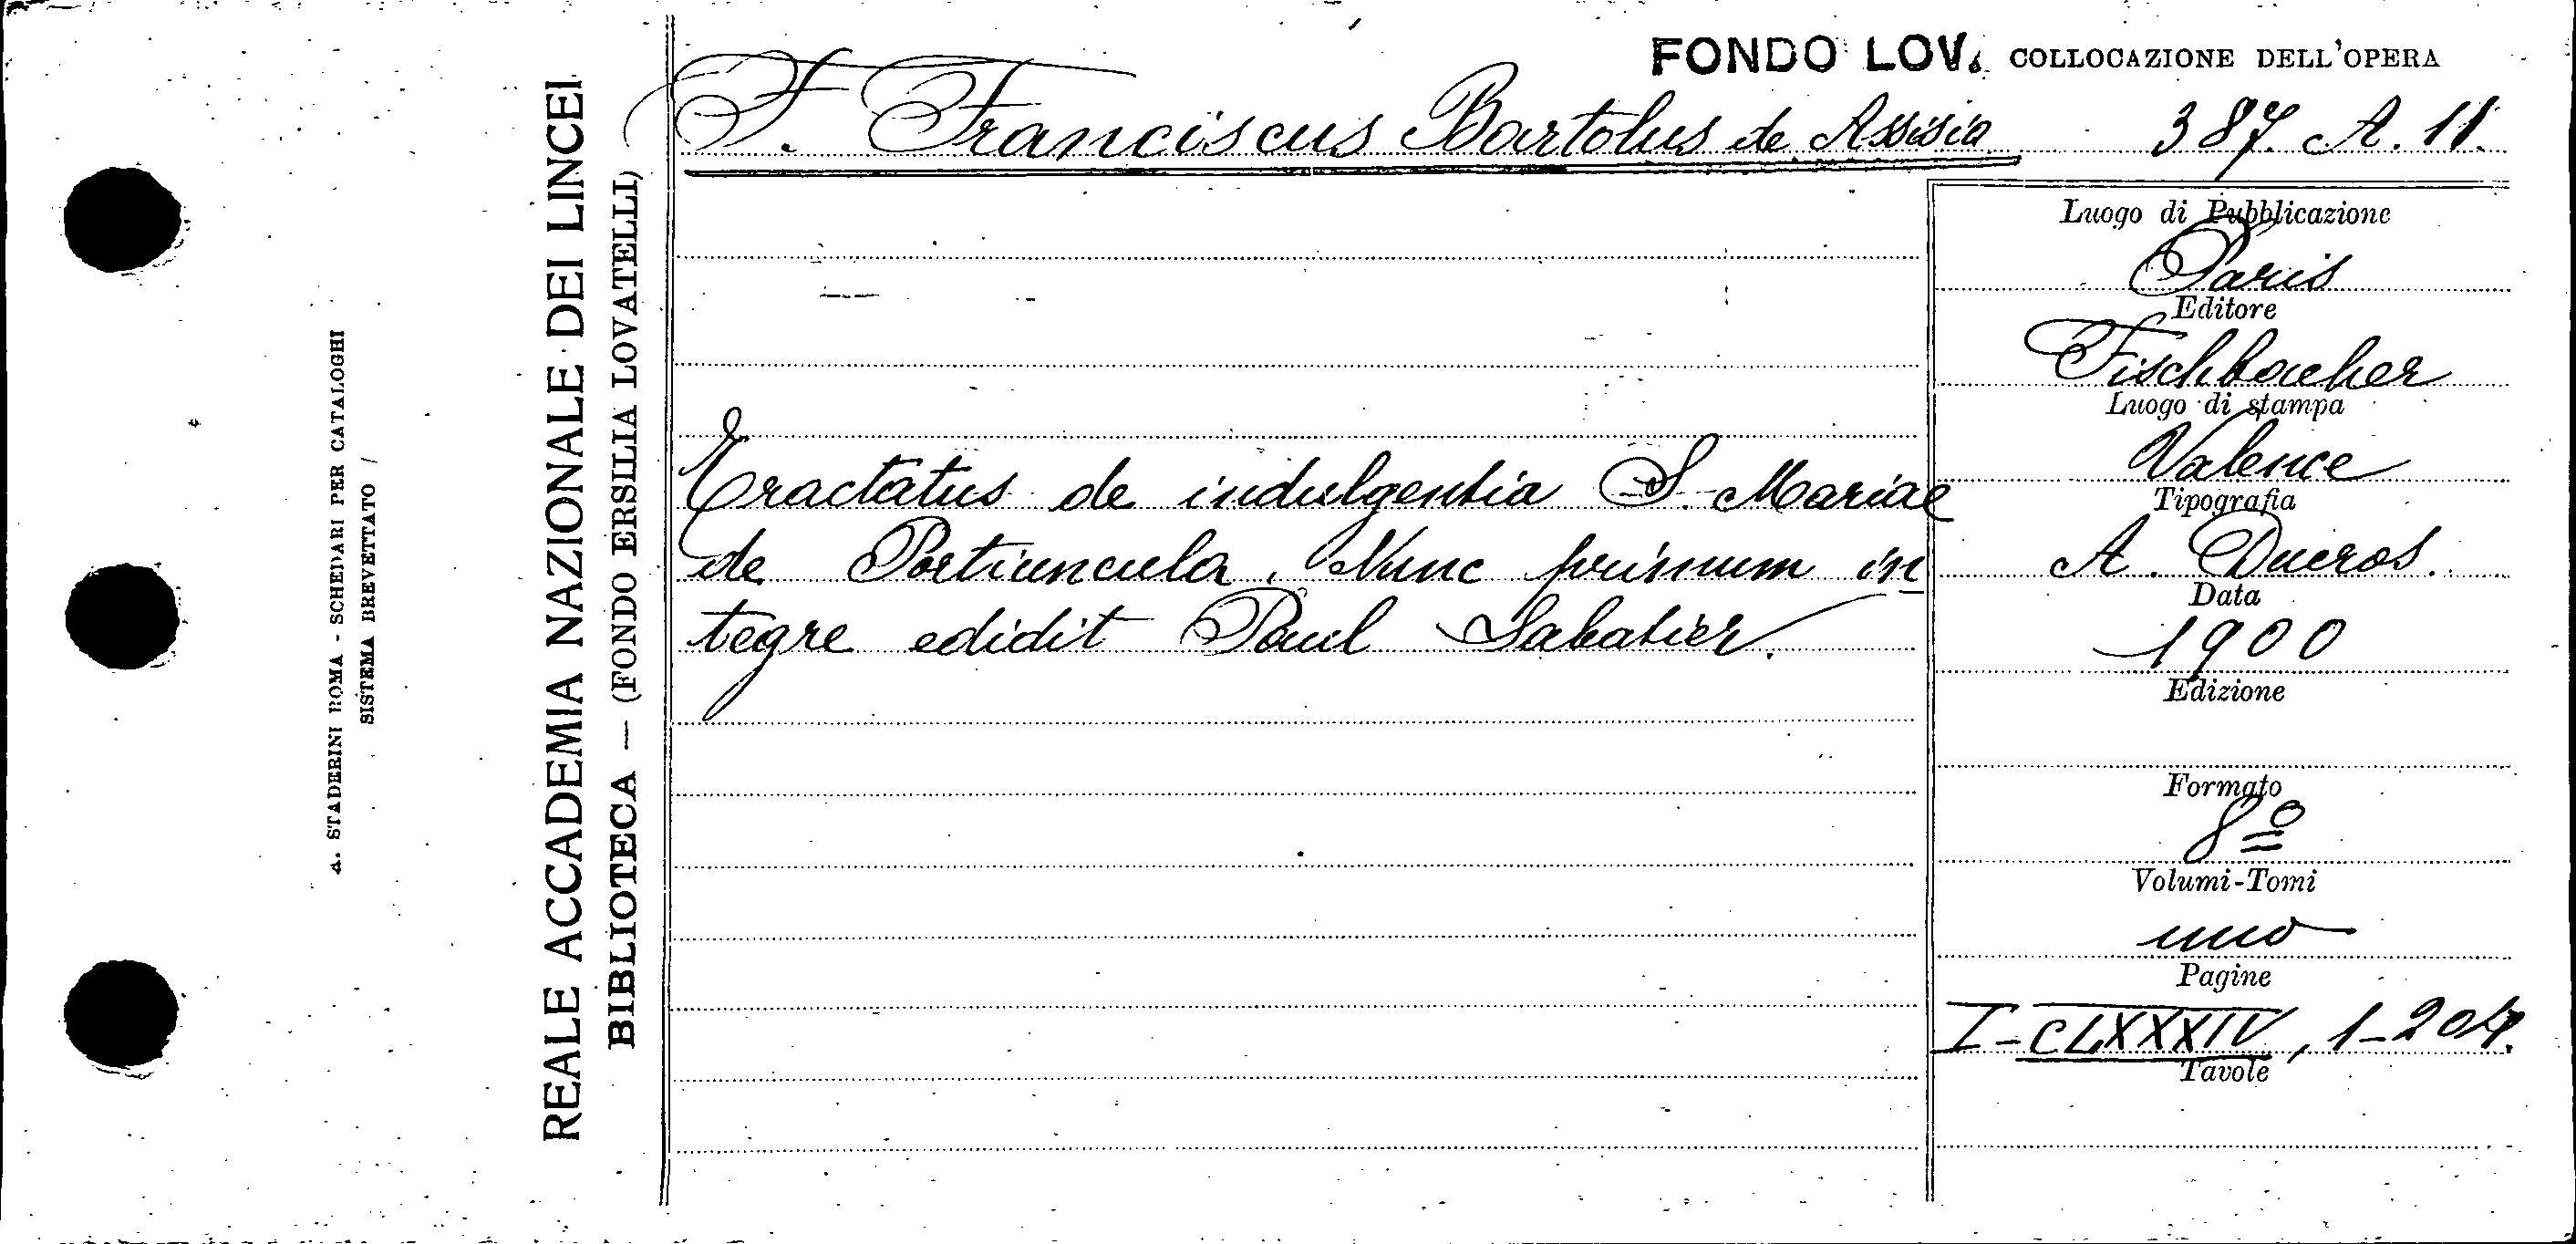 FONDO LOV. COLLOCAZIONE DELL'OPERA
F. Franciscus Bartolus de Assisia 387. A. 11.
A. STADERINI ROMA - SCHEDARI PER CATALOGHI
SISTEMA BREVETTATO
REALE ACCADEMIA NAZIONALE DEI LINCEI
BIBLIOTECA — (FONDO ERSILIA LOVATELLI)
Tractatus de indulgentia S. Mariae
de Portiuncula. Nunc primum in
tegre edidit Paul Sabatier.
Luogo di Pubblicazione
Paris
Editore
Fischbacher
Luogo di stampa
Valence
Tipografia
A. Ducros.
Data
1900
Edizione
Formato
8º
Volumi-Tomi
uno
Pagine
I-CLXXXIV, 1-204.
Tavole